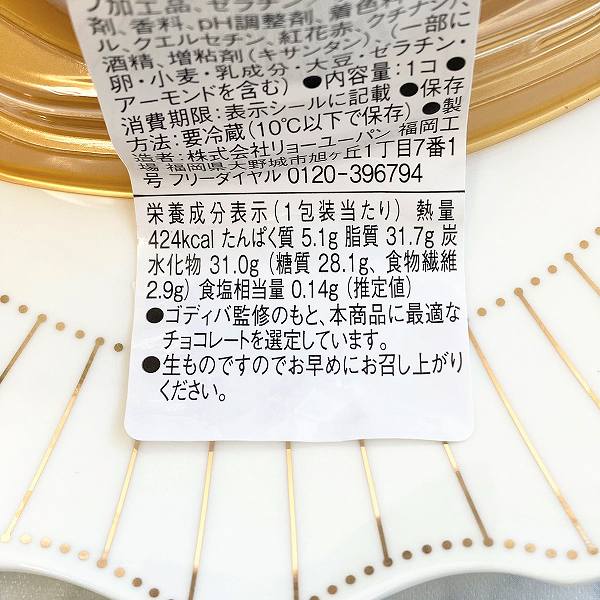 ノ加工品、ゼラチン、
剤、香料、pH調整剤、着色料(クチナシ、
ル、クエルセチン、紅花赤、
酒精、増粘剤(キサンタン)、(一部に
卵・小麦・乳成分・大豆・ゼラチン・
アーモンドを含む) ●内容量:1コ ●
消費期限:表示シールに記載 ●保存
方法:要冷蔵(10℃以下で保存) ●製
造者:株式会社リョーユーパン 福岡工
場 福岡県大野城市旭ヶ丘1丁目7番1
号 フリーダイヤル 0120-396794
栄養成分表示(1包装当たり) 熱量
424kcal たんぱく質 5.1g 脂質 31.7g 炭
水化物 31.0g (糖質 28.1g、食物繊維
2.9g) 食塩相当量 0.14g (推定値)
●ゴディバ監修のもと、本商品に最適な
チョコレートを選定しています。
●生ものですのでお早めにお召し上がり
ください。